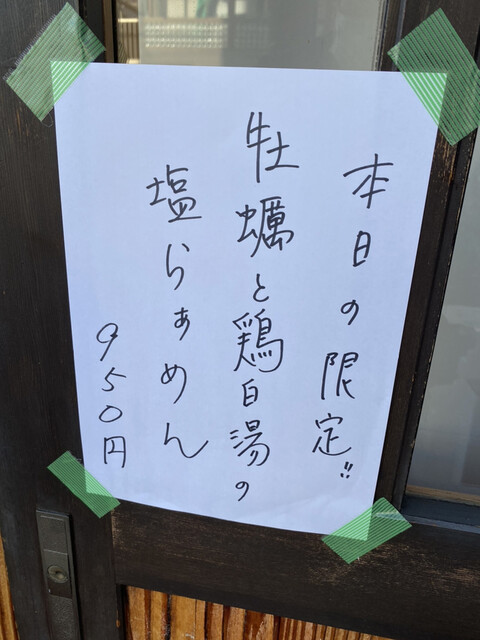 本日の限定!!
牡蠣と鶏白湯の
塩らぁめん
950円